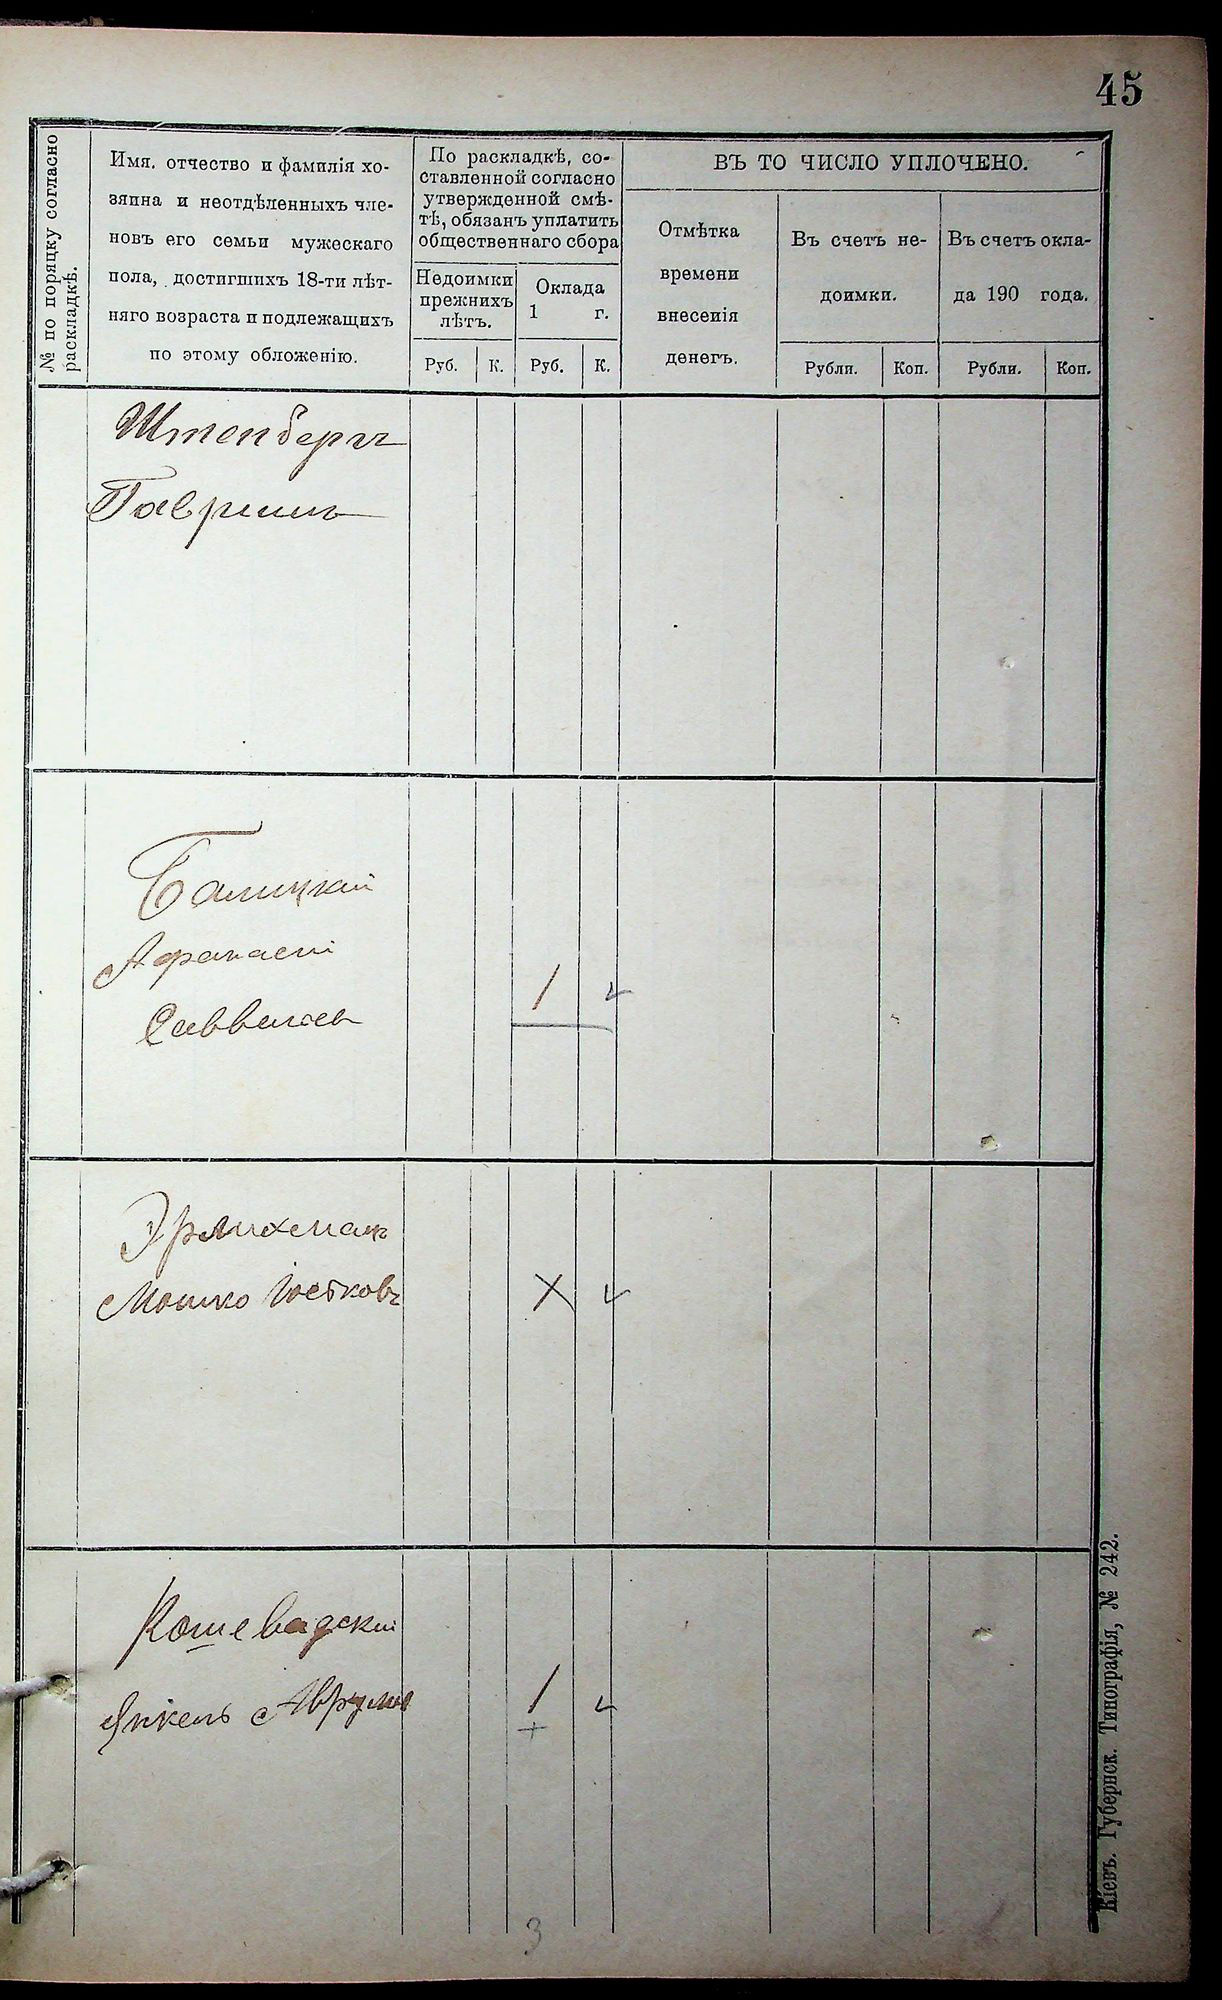 45
№ по поряцку согласно
раскладкѣ.
Имя, отчество и фамилія хо-
зяина и неотдѣленныхъ чле-
новъ его семьи мужескаго
пола, достигшихъ 18-ти лѣт-
няго возраста и подлежащихъ
по этому обложенію.
По раскладкѣ, со-
ставленной согласно
утвержденной смѣ-
тѣ, обязанъ уплатить
общественнаго сбора
Недоимки
прежнихъ
лѣтъ.
Оклада
1 г.
Руб.
К.
Руб.
К.
ВЪ ТО ЧИСЛО УПЛОЧЕНО.
Отмѣтка
времени
внесенія
денегъ.
Въ счетъ не-
доимки.
Въ счетъ окла-
да 190 года.
Рубли.
Коп.
Рубли.
Коп.
Штенбергъ
Гавриилъ
Балицкий
Афанасий
Савватіевъ
1
Эрлихманъ
Мошко Іоськовъ
Х
Кошевадский
Янкель Аврумов
1
+
3
Кіевъ. Губернск. Типографія, № 242.